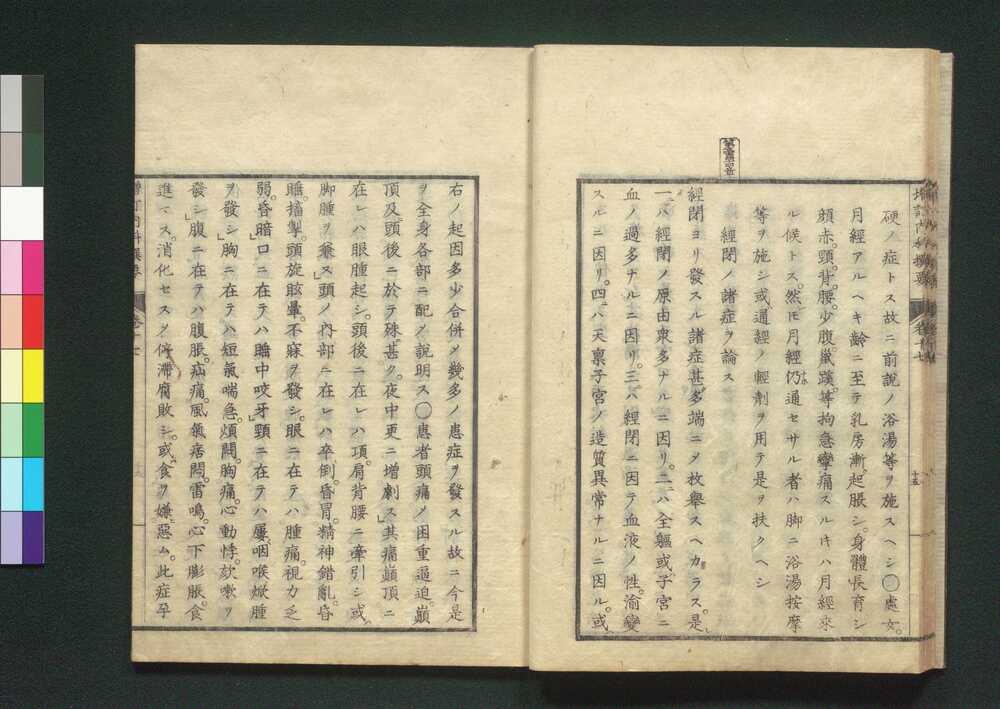 硬ノ症トス故ニ前説ノ浴湯等ヲ施スヘシ〇處女
月經アルヘキ齡ニ至テ乳房漸起脹シ身體長育シ
頰赤。頸。背。腰。少腹。蹠等拘急攣痛スルキハ月經來
ル候トス。然ヒ月經仍通セサル者ハ脚ニ浴湯按摩
等ヲ施シ或通經ノ輕劑ヲ用テ是ヲ扶クヘシ
經閉ノ諸症ヲ論ス
經閉ヨリ發スル諸症甚多端ニメ枚擧スヘカラス。是
一ハ經閉ノ原由衆多ナルニ因リ。二ハ全軀或子宮ニ
血ノ過多ナルニ因リ。三ハ經閉ニ因テ血液ノ性。渝變
スルニ因リ。四ハ天稟子宮ノ造質異常ナルニ因ル。或
右ノ起因多少合併メ幾多ノ患症ヲ發スル故ニ今是
ヲ全身各部ニ配メ説明ス〇患者頭痛メ困重逼迫。巓
頂及頭後ニ於テ殊甚ク。夜中更ニ増劇ス其痛巓頂ニ
在レハ眼腫起シ。頭後ニ在レハ項。肩背腰ニ牽引シ或
脚腫ヲ兼ス」頭ノ內部ニ在レハ卒倒。昏冒。精神錯亂。昏
睡。搐掣。頭旋眩暈。不寐ヲ發シ。眼ニ在テハ腫痛。視力乏
弱。昏暗口ニ在テハ睡中咬牙」頸ニ在テハ屢咽喉焮腫
ヲ發シ」胸ニ在テハ短氣喘急。煩悶。胸痛。心動悸。欬嗽ヲ
發シ」腹ニ在テハ腹脹。疝痛。風氣痞悶。雷鳴。心下膨脹。食
進マス。消化セスメ停滯腐敗シ。或食ヲ嫌惡ム。此症孕